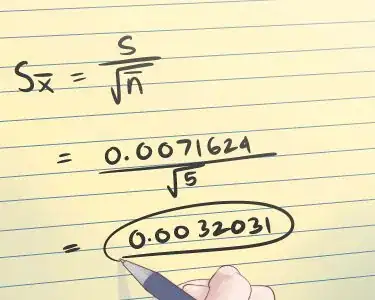 Sx̅ = S/√n
= 0.0071624/√5
= 0.0032031